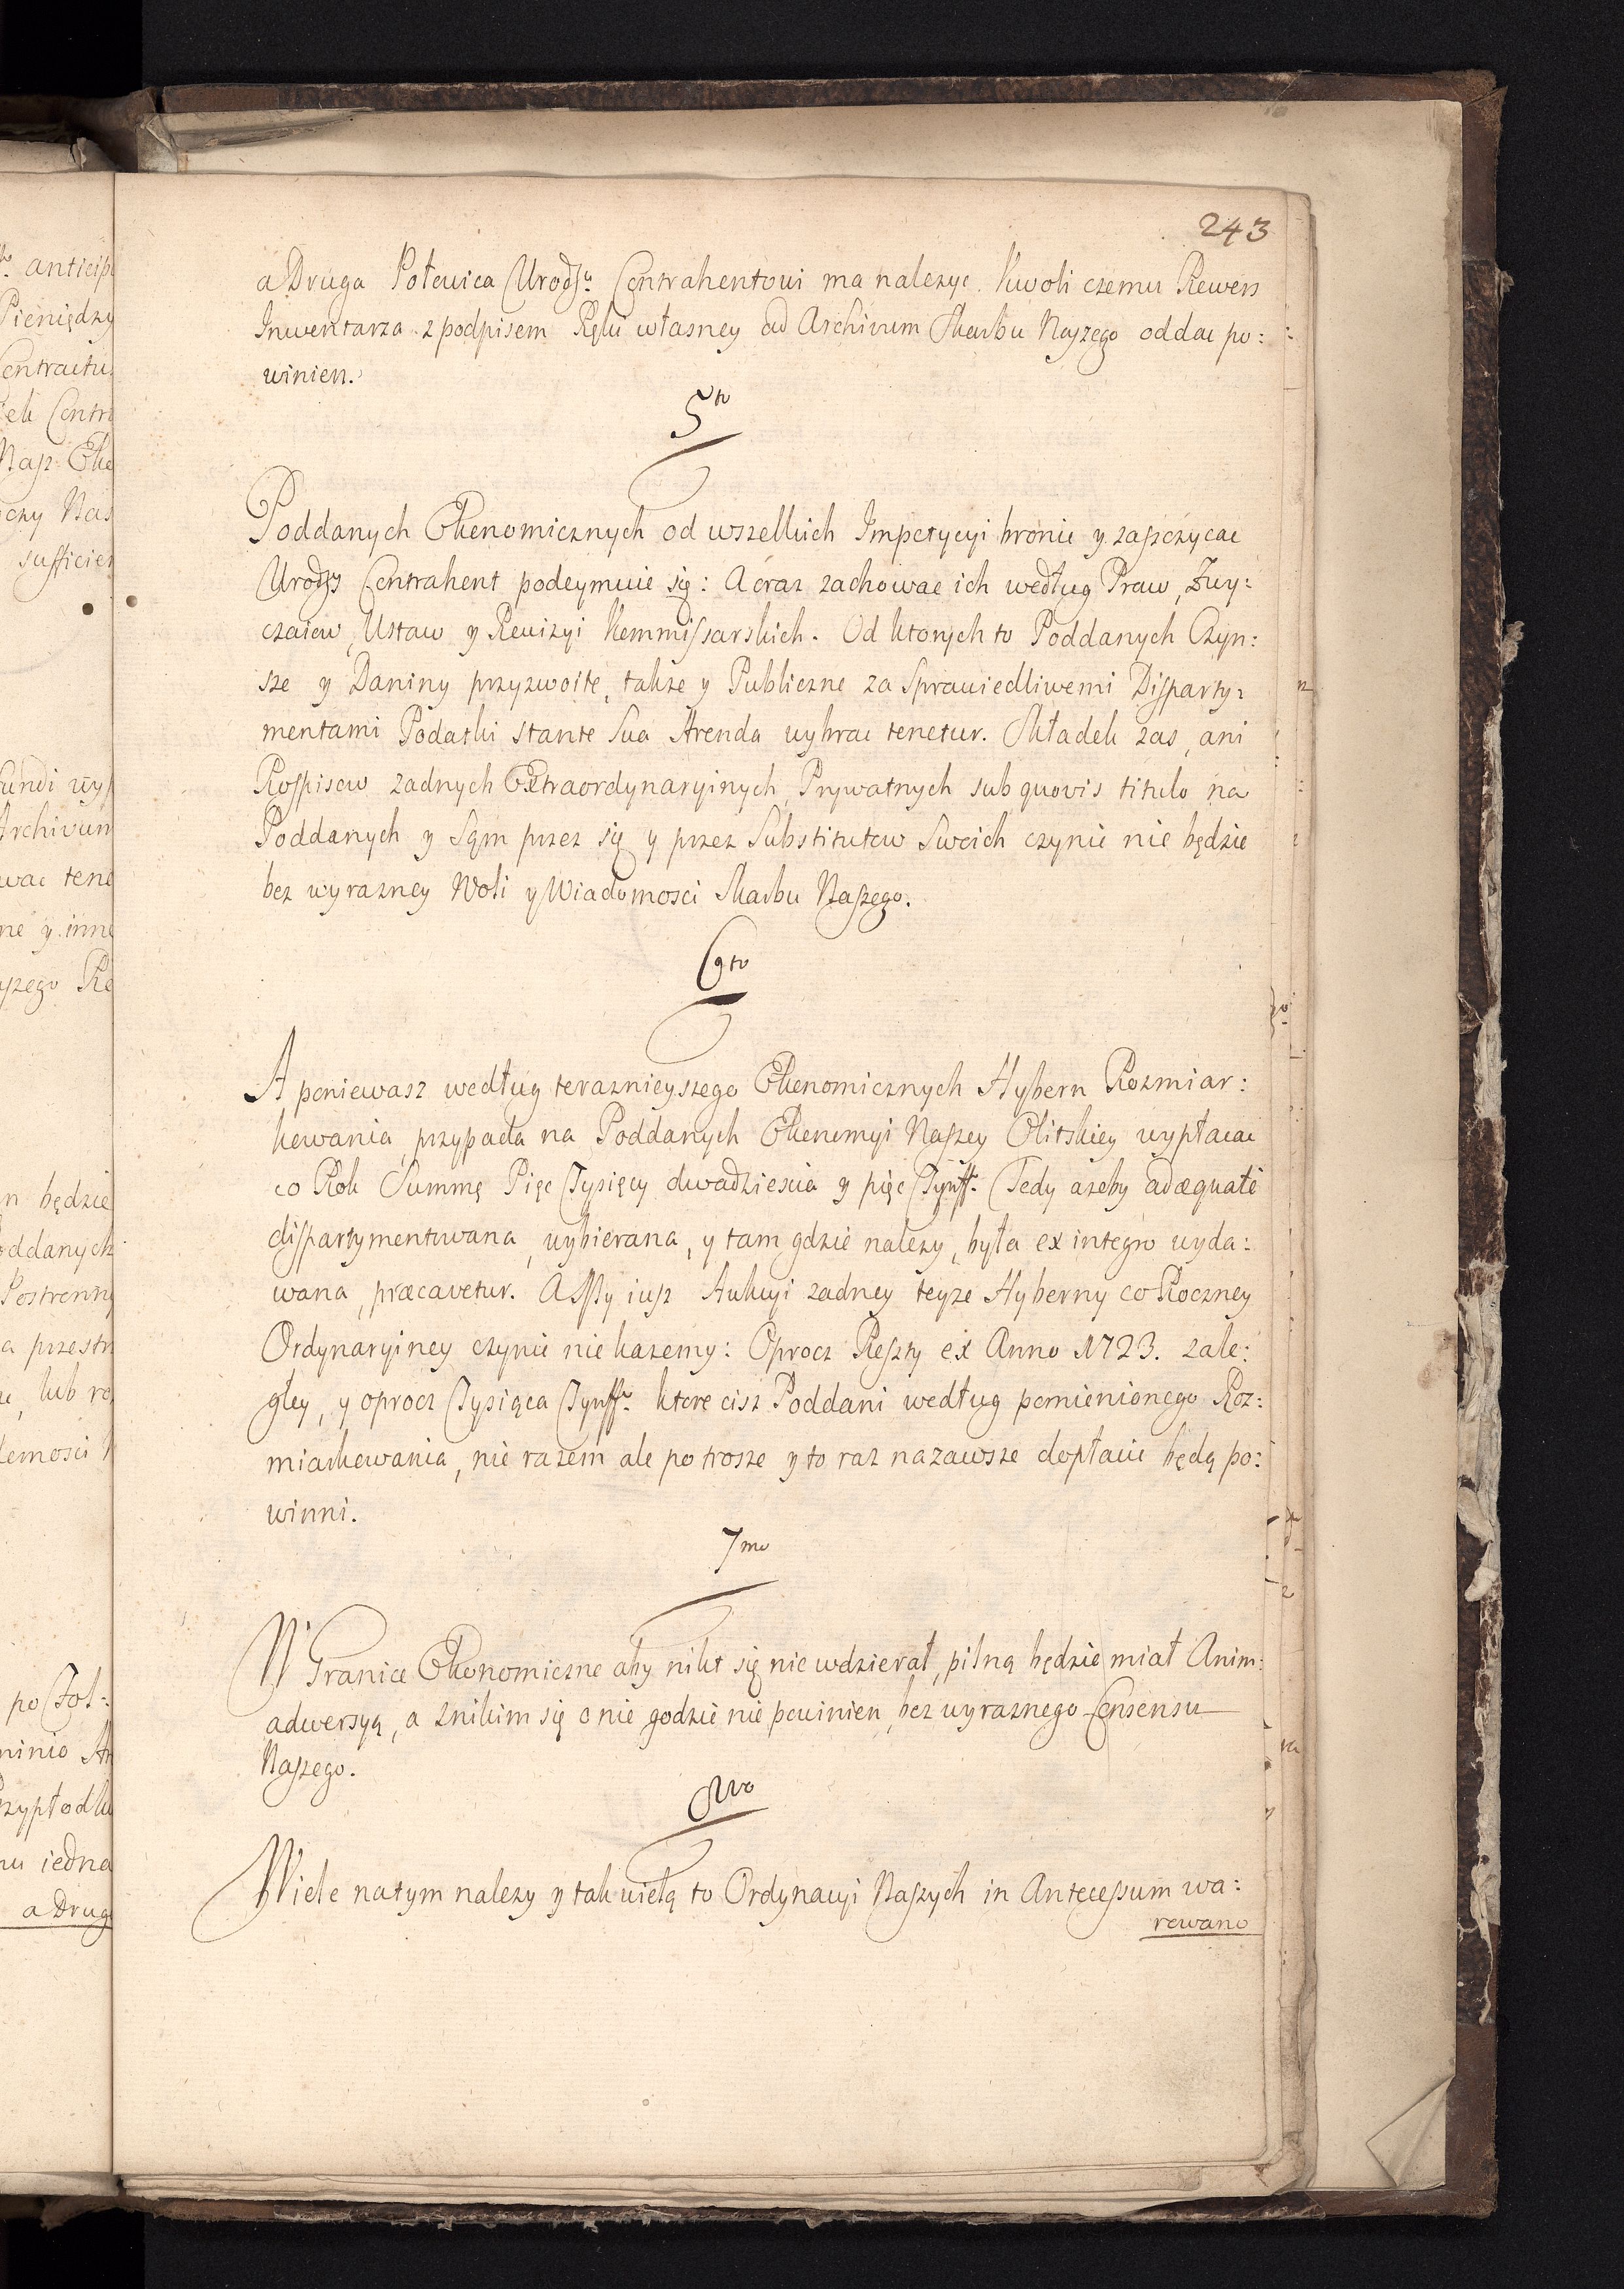 243
a Druga Połowica Urodz: Contrahentowi ma nalezyc. Kwoli czemu Rewers
Inwentarza z podpisem Ręki własney ad Archivum Skarbu Naszego oddac po:
winien.
5to
Poddanych Ekonomicznych od wszelkich Impetycyi bronic y zaszczycac
Urodzy Contrahent podeymuie się: A oraz zachowac ich według Praw, Zwy:
czaiow, Ustaw y Rewizyi Kommissarskich. Od ktorych to Poddanych Czyn:
sze y Daniny przyzwoite, także y Publiczne za Sprawiedliwemi Disparty:
mentami Podatki stante Sua Arenda wybrac tenetur. Składek zas, ani
Rospisow zadnych Extraordynaryinych, Prywatnych sub quovis titulo na
Poddanych y Sąm przez się y przez Substitutow Swoich czynic nie będzie
bez wyrazney Woli y Wiadomosci Skarbu Naszego.
6to
A poniewasz według teraznieyszego Ekonomicznych Hybern Rozmiar:
kowania, przypada na Poddanych Ekonomyi Naszey Olitskiey wypłacac
co Rok Summę Pięc Tysięcy dwadziescia y pięc Tynff: Tedy azeby adæquate
dispartymentowana, wybierana, y tam gdzie nalezy, była ex integro wyda:
wana, præcavetur. A My iusz Aukcyi zadney teyze Hyberny co Roczney
Ordynaryiney czynic nie kazemy: Oprocz Reszty ex Anno 1723. zale:
głey, y oprocz Tysiąca Tynff: ktore cisz Poddani według pomienionego Roz:
miarkowania, nie razem ale po trosze y to raz nazawsze dopłacic będą po:
winni.
7mo
W Granice Ekonomiczne aby nikt się nie wdzierał, pilną będzie miał Anim:
adwersyą, a znikim się o nie godzic nie powinien, bez wyraznego Consensu
Naszego.
8vo
Wiele natym nalezy y tak wielą to Ordynacyi Naszych in Antecessum wa:
rowano